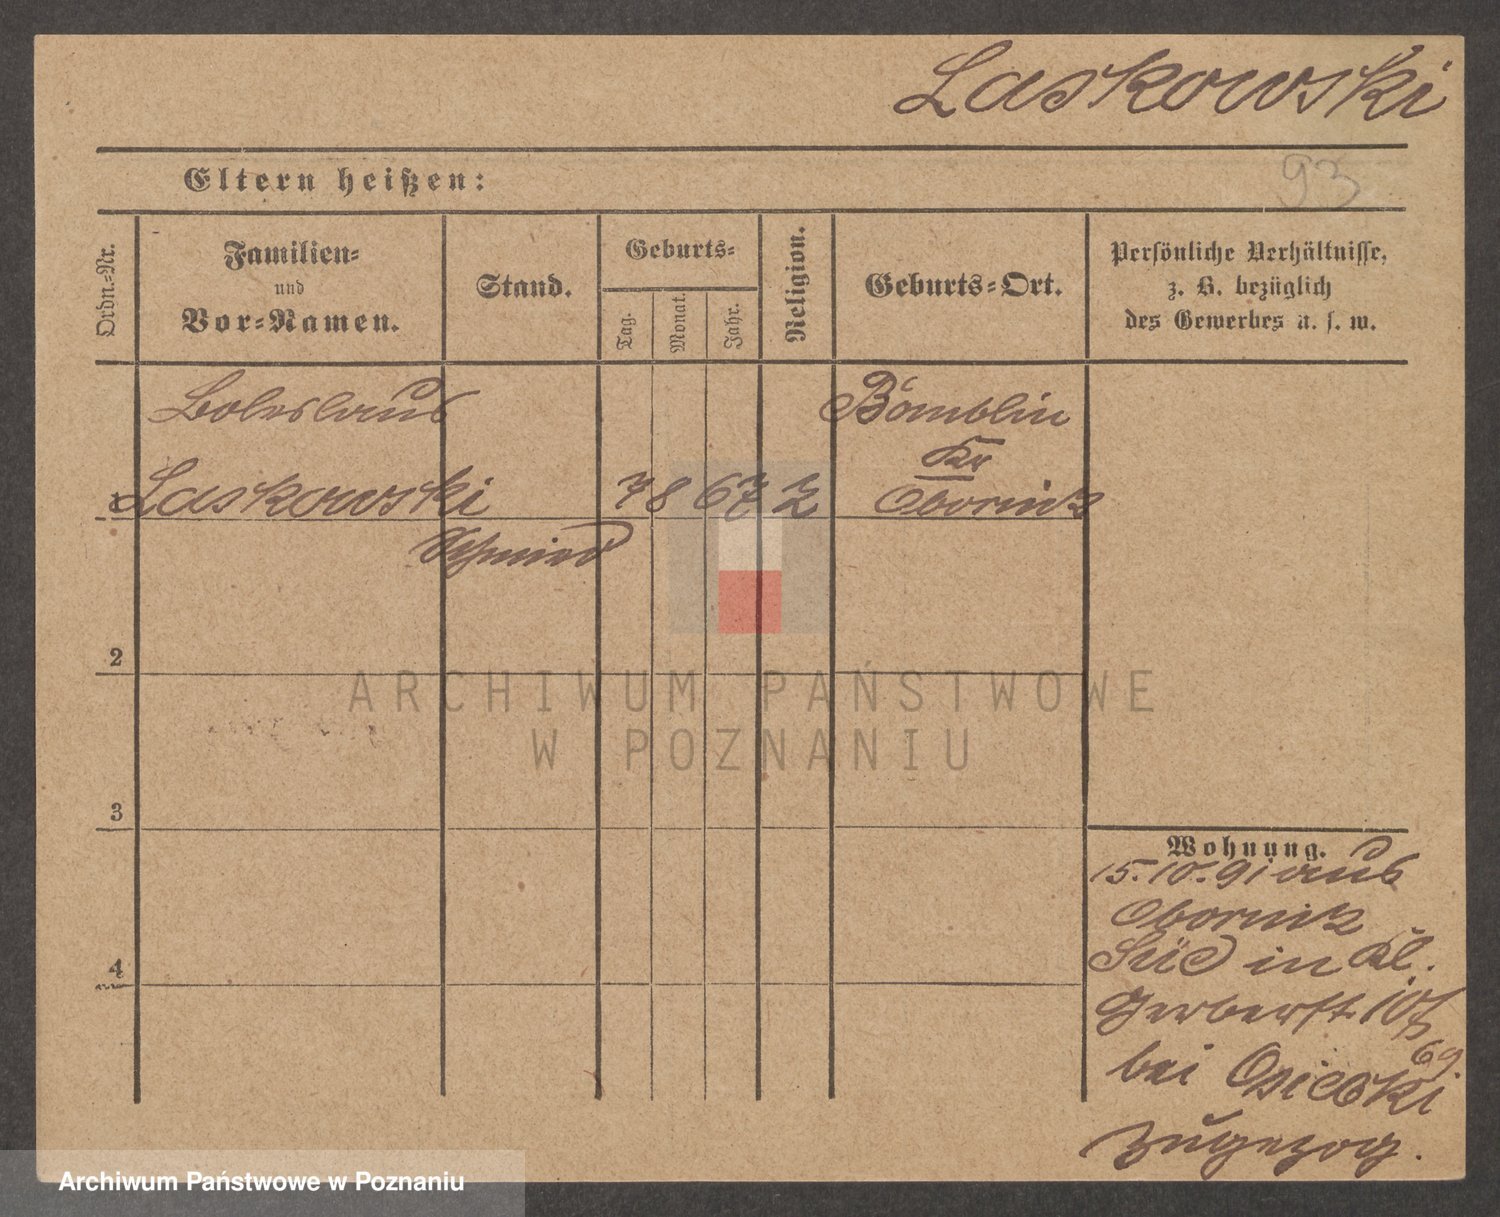 Laskowski
93
Eltern heißen:
Ordn.-Nr.
Familien-
und
Vor-Namen.
Stand.
Geburts-
Tag.
Monat.
Jahr.
Religion.
Geburts-Ort.
Persönliche Verhältnisse,
z. B. bezüglich
des Gewerbes u. s. w.
Boleslaus
Laskowski
Schmied
7 8 67
Bomblin
Kr
Obornik
1
2
3
4
ARCHIWUM PAŃSTWOWE
W POZNANIU
Wohnung.
15.10.91 aus
Obornik
Süd in Kl.
Gerberst. 10
69
bei Osiecki
zugezog.
Archiwum Państwowe w Poznaniu